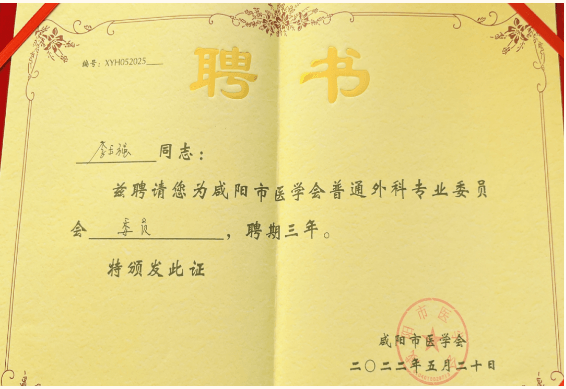 聘书
编号：XYH052025___
同志：
兹聘请您为咸阳市医学会普通外科专业委员
会 委员 ，聘期三年。
特颁发此证
咸阳市医学会
二〇二二年五月二十日